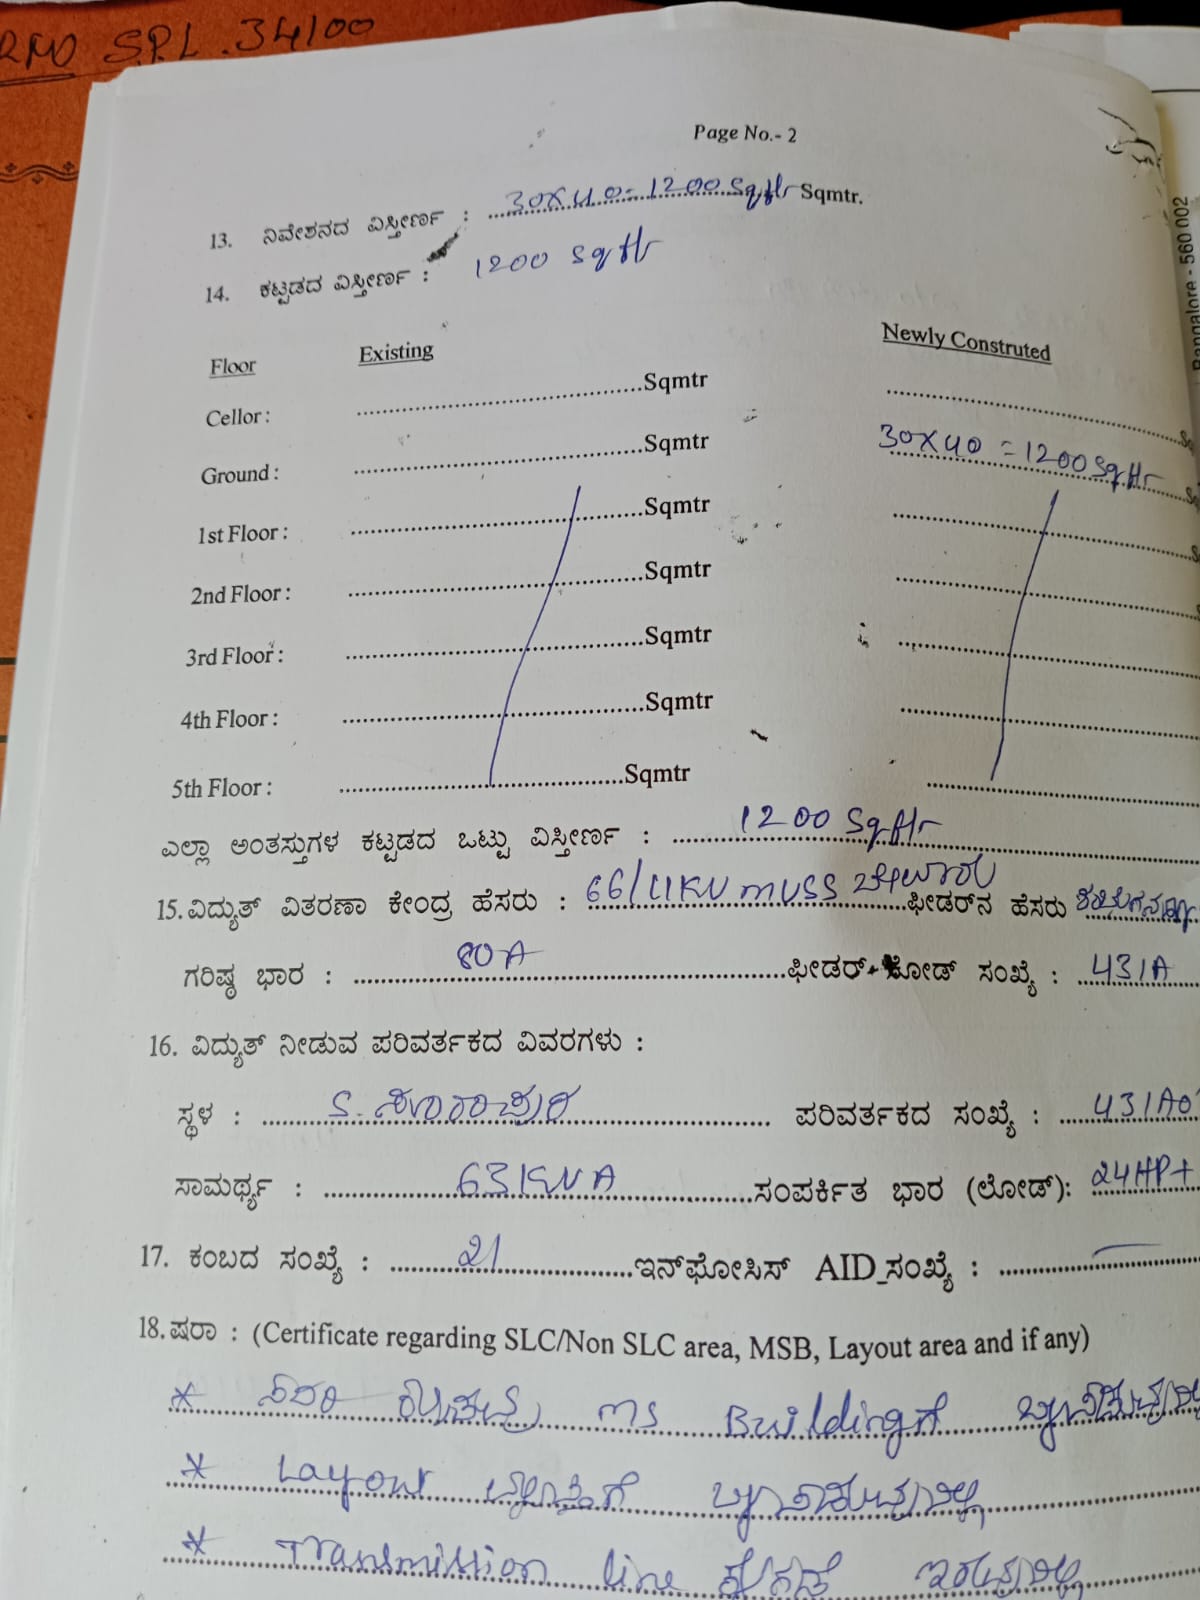 SPL.34/00
Page No.- 2
Bangalore - 560 002
13. ನಿವೇಶನದ ವಿಸ್ತೀರ್ಣ : 30X40=1200 Sqftr Sqmtr.
14. ಕಟ್ಟಡದ ವಿಸ್ತೀರ್ಣ : 1200 Sqftr
Floor Existing Newly Construted
Cellor : Sqmtr
Ground : Sqmtr 30X40 = 1200 Sqftr
1st Floor : Sqmtr
2nd Floor : Sqmtr
3rd Floor : Sqmtr
4th Floor : Sqmtr
5th Floor : Sqmtr
ಎಲ್ಲಾ ಅಂತಸ್ತುಗಳ ಕಟ್ಟಡದ ಒಟ್ಟು ವಿಸ್ತೀರ್ಣ : 1200 Sqftr
15. ವಿದ್ಯುತ್ ವಿತರಣಾ ಕೇಂದ್ರ ಹೆಸರು : 66/11KV MUSS ಬೇಲೂರು ಫೀಡರ್‌ನ ಹೆಸರು
ಗರಿಷ್ಠ ಭಾರ : 80A ಫೀಡರ್ ಕೋಡ್ ಸಂಖ್ಯೆ : 431A
16. ವಿದ್ಯುತ್ ನೀಡುವ ಪರಿವರ್ತಕದ ವಿವರಗಳು :
ಸ್ಥಳ : ಪರಿವರ್ತಕದ ಸಂಖ್ಯೆ : 431A0
ಸಾಮರ್ಥ್ಯ : 63KVA ಸಂಪರ್ಕಿತ ಭಾರ (ಲೋಡ್): 24HP+
17. ಕಂಬದ ಸಂಖ್ಯೆ : 21 ಇನ್‌ಫೋಸಿಸ್ AID_ಸಂಖ್ಯೆ :
18. ಷರಾ : (Certificate regarding SLC/Non SLC area, MSB, Layout area and if any)
* ಸದರಿ ಕಟ್ಟಡವು MS Buildingಗೆ
* Layout
* Transmission line ಕೆಳಗಡೆ ಇರುವುದಿಲ್ಲ